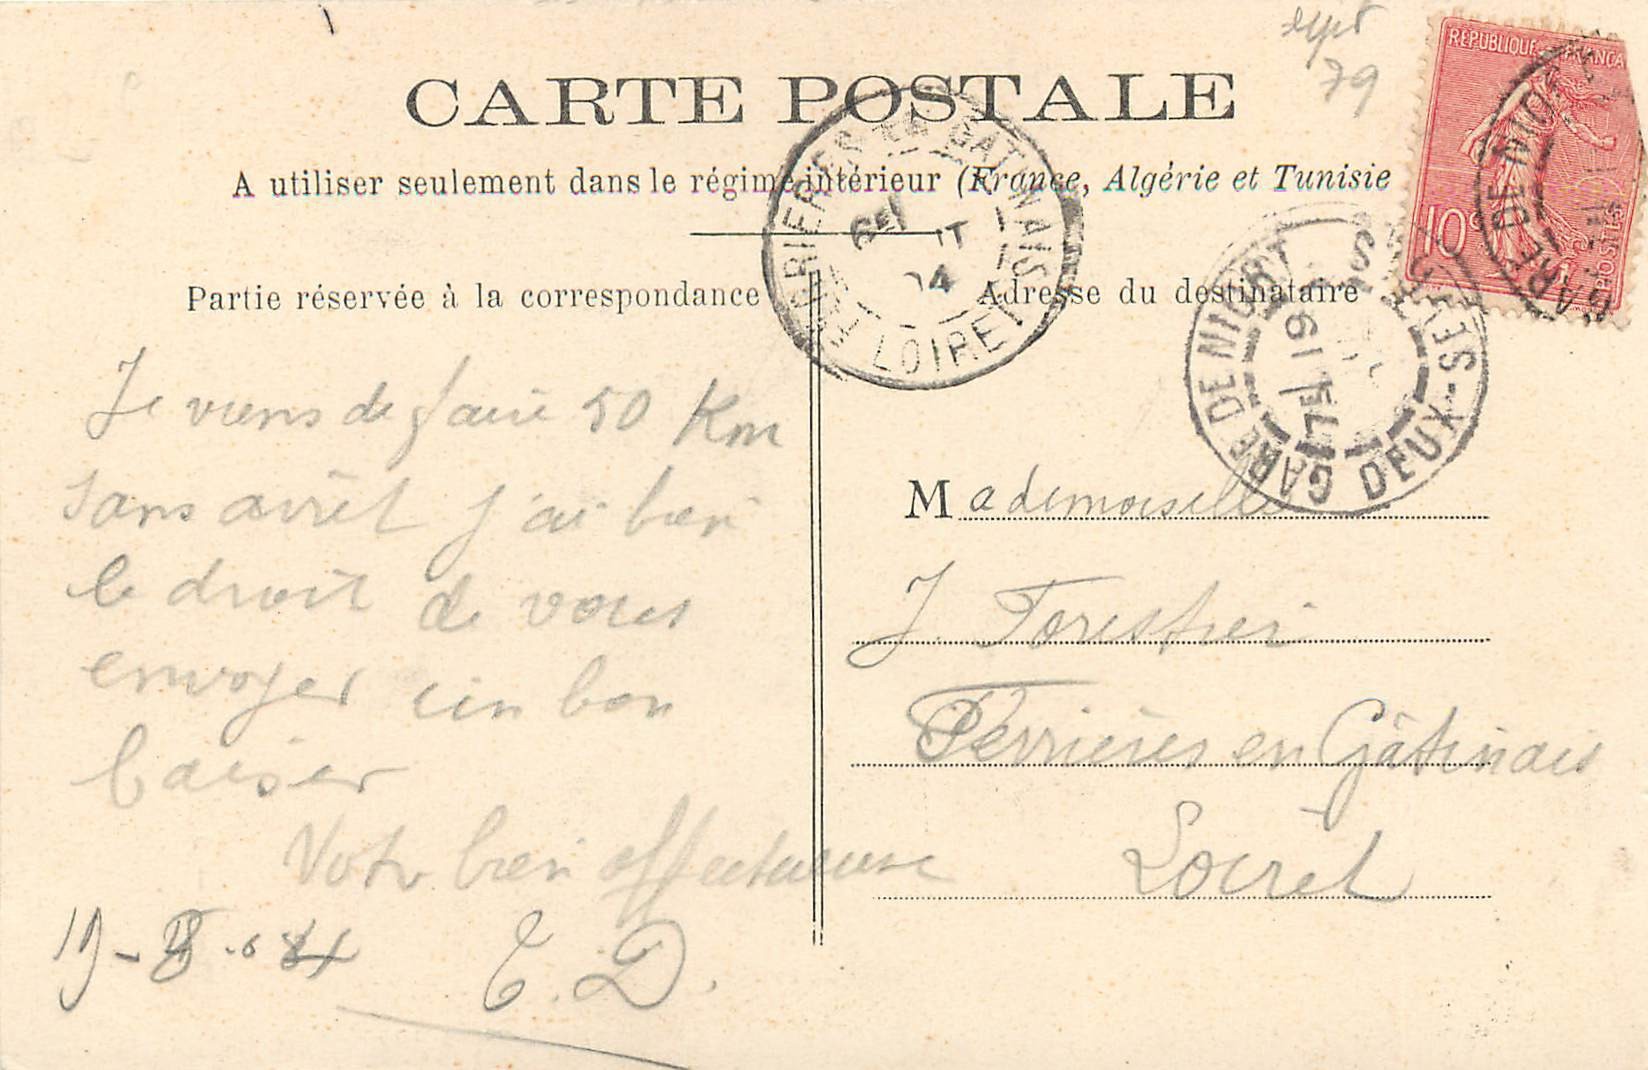 sept
79
CARTE POSTALE
A utiliser seulement dans le régime intérieur (France, Algérie et Tunisie
Partie réservée à la correspondance
Adresse du destinataire
RÉPUBLIQUE FRANÇA
10c
POSTES
GARE DE NIORT
FERRIERES EN GATINAIS
LOIRET
04
GARE DE NIORT
DEUX-SEVRES
19
Je viens de faire 50 Km
sans arrêt j'ai bien
le droit de vous
envoyer un bon
baiser
Votre bien affectueuse
19-8-04
E. D.
Mademoiselle
J. Forestier
Ferrières en Gâtinais
Loiret